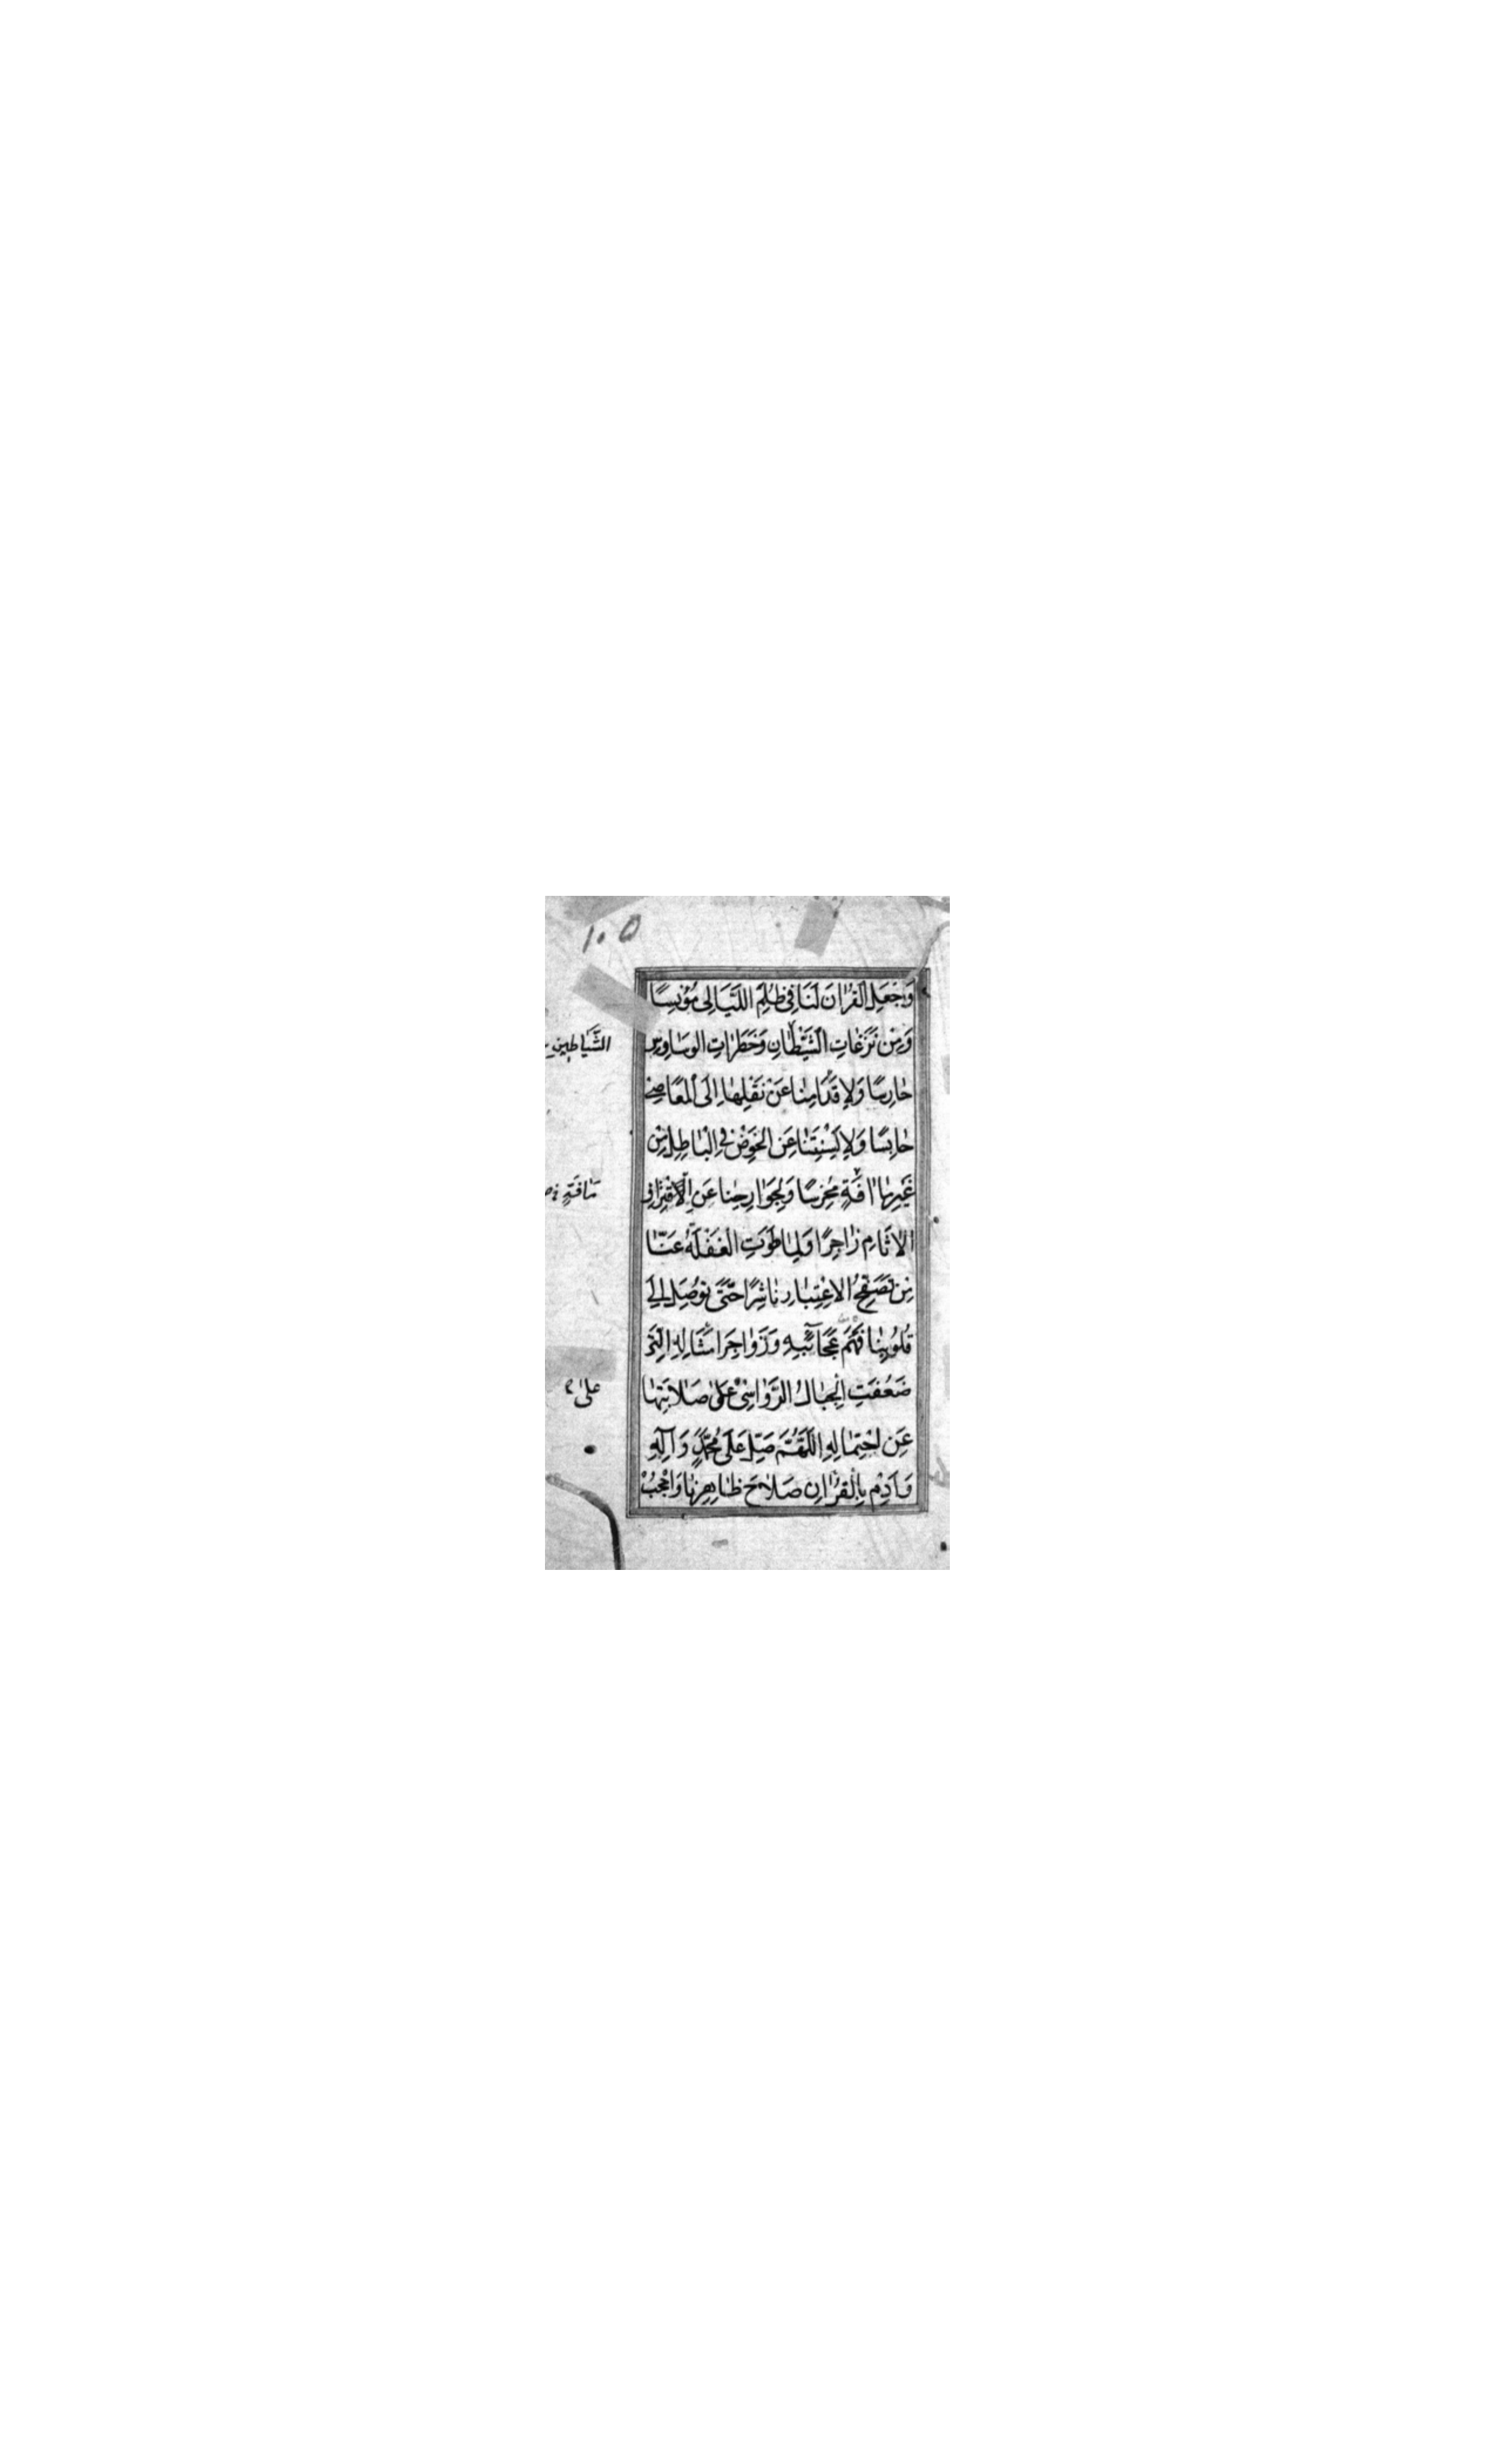 ١٠٥
وَاجْعَلِ الْقُرْاٰنَ لَنَا فِی ظُلَمِ اللَّیَالِی مُوْنِسًا
وَمِنْ نَزَغَاتِ الشَّیْطَانِ وَخَطَرَاتِ الْوَسَاوِسِ
الشَّیَاطِینِ
حَارِسًا وَلِاَقْدَامِنَا عَنْ نَقْلِهَا اِلَی الْمَعَاصِی
حَابِسًا وَلِاَلْسِنَتِنَا عَنِ الْخَوْضِ فِی الْبَاطِلِ مِنْ
غَیْرِ مَا اٰفَةٍ مُخْرِسًا وَلِجَوَارِحِنَا عَنِ الْاِقْتِرَافِ
مَافَةٍ
الْاٰثَامِ زَاجِرًا وَلِمَا طَوَتِ الْغَفْلَةُ عَنَّا
مِنْ تَصَفُّحِ الْاِعْتِبَارِ نَاشِرًا حَتّٰی تُوْصِلَ اِلٰی
قُلُوْبِنَا فَهْمَ عَجَآئِبِهِ وَزَوَاجِرَ اَمْثَالِهِ الَّتِی
ضَعُفَتِ الْجِبَالُ الرَّوَاسِی عَلٰی صَلَابَتِهَا
علیٰ
عَنِ احْتِمَالِهِ اَللّٰهُمَّ صَلِّ عَلٰی مُحَمَّدٍ وَاٰلِهِ
وَاَدِمْ بِالْقُرْاٰنِ صَلَاحَ ظَاهِرِنَا وَاحْجُبْ